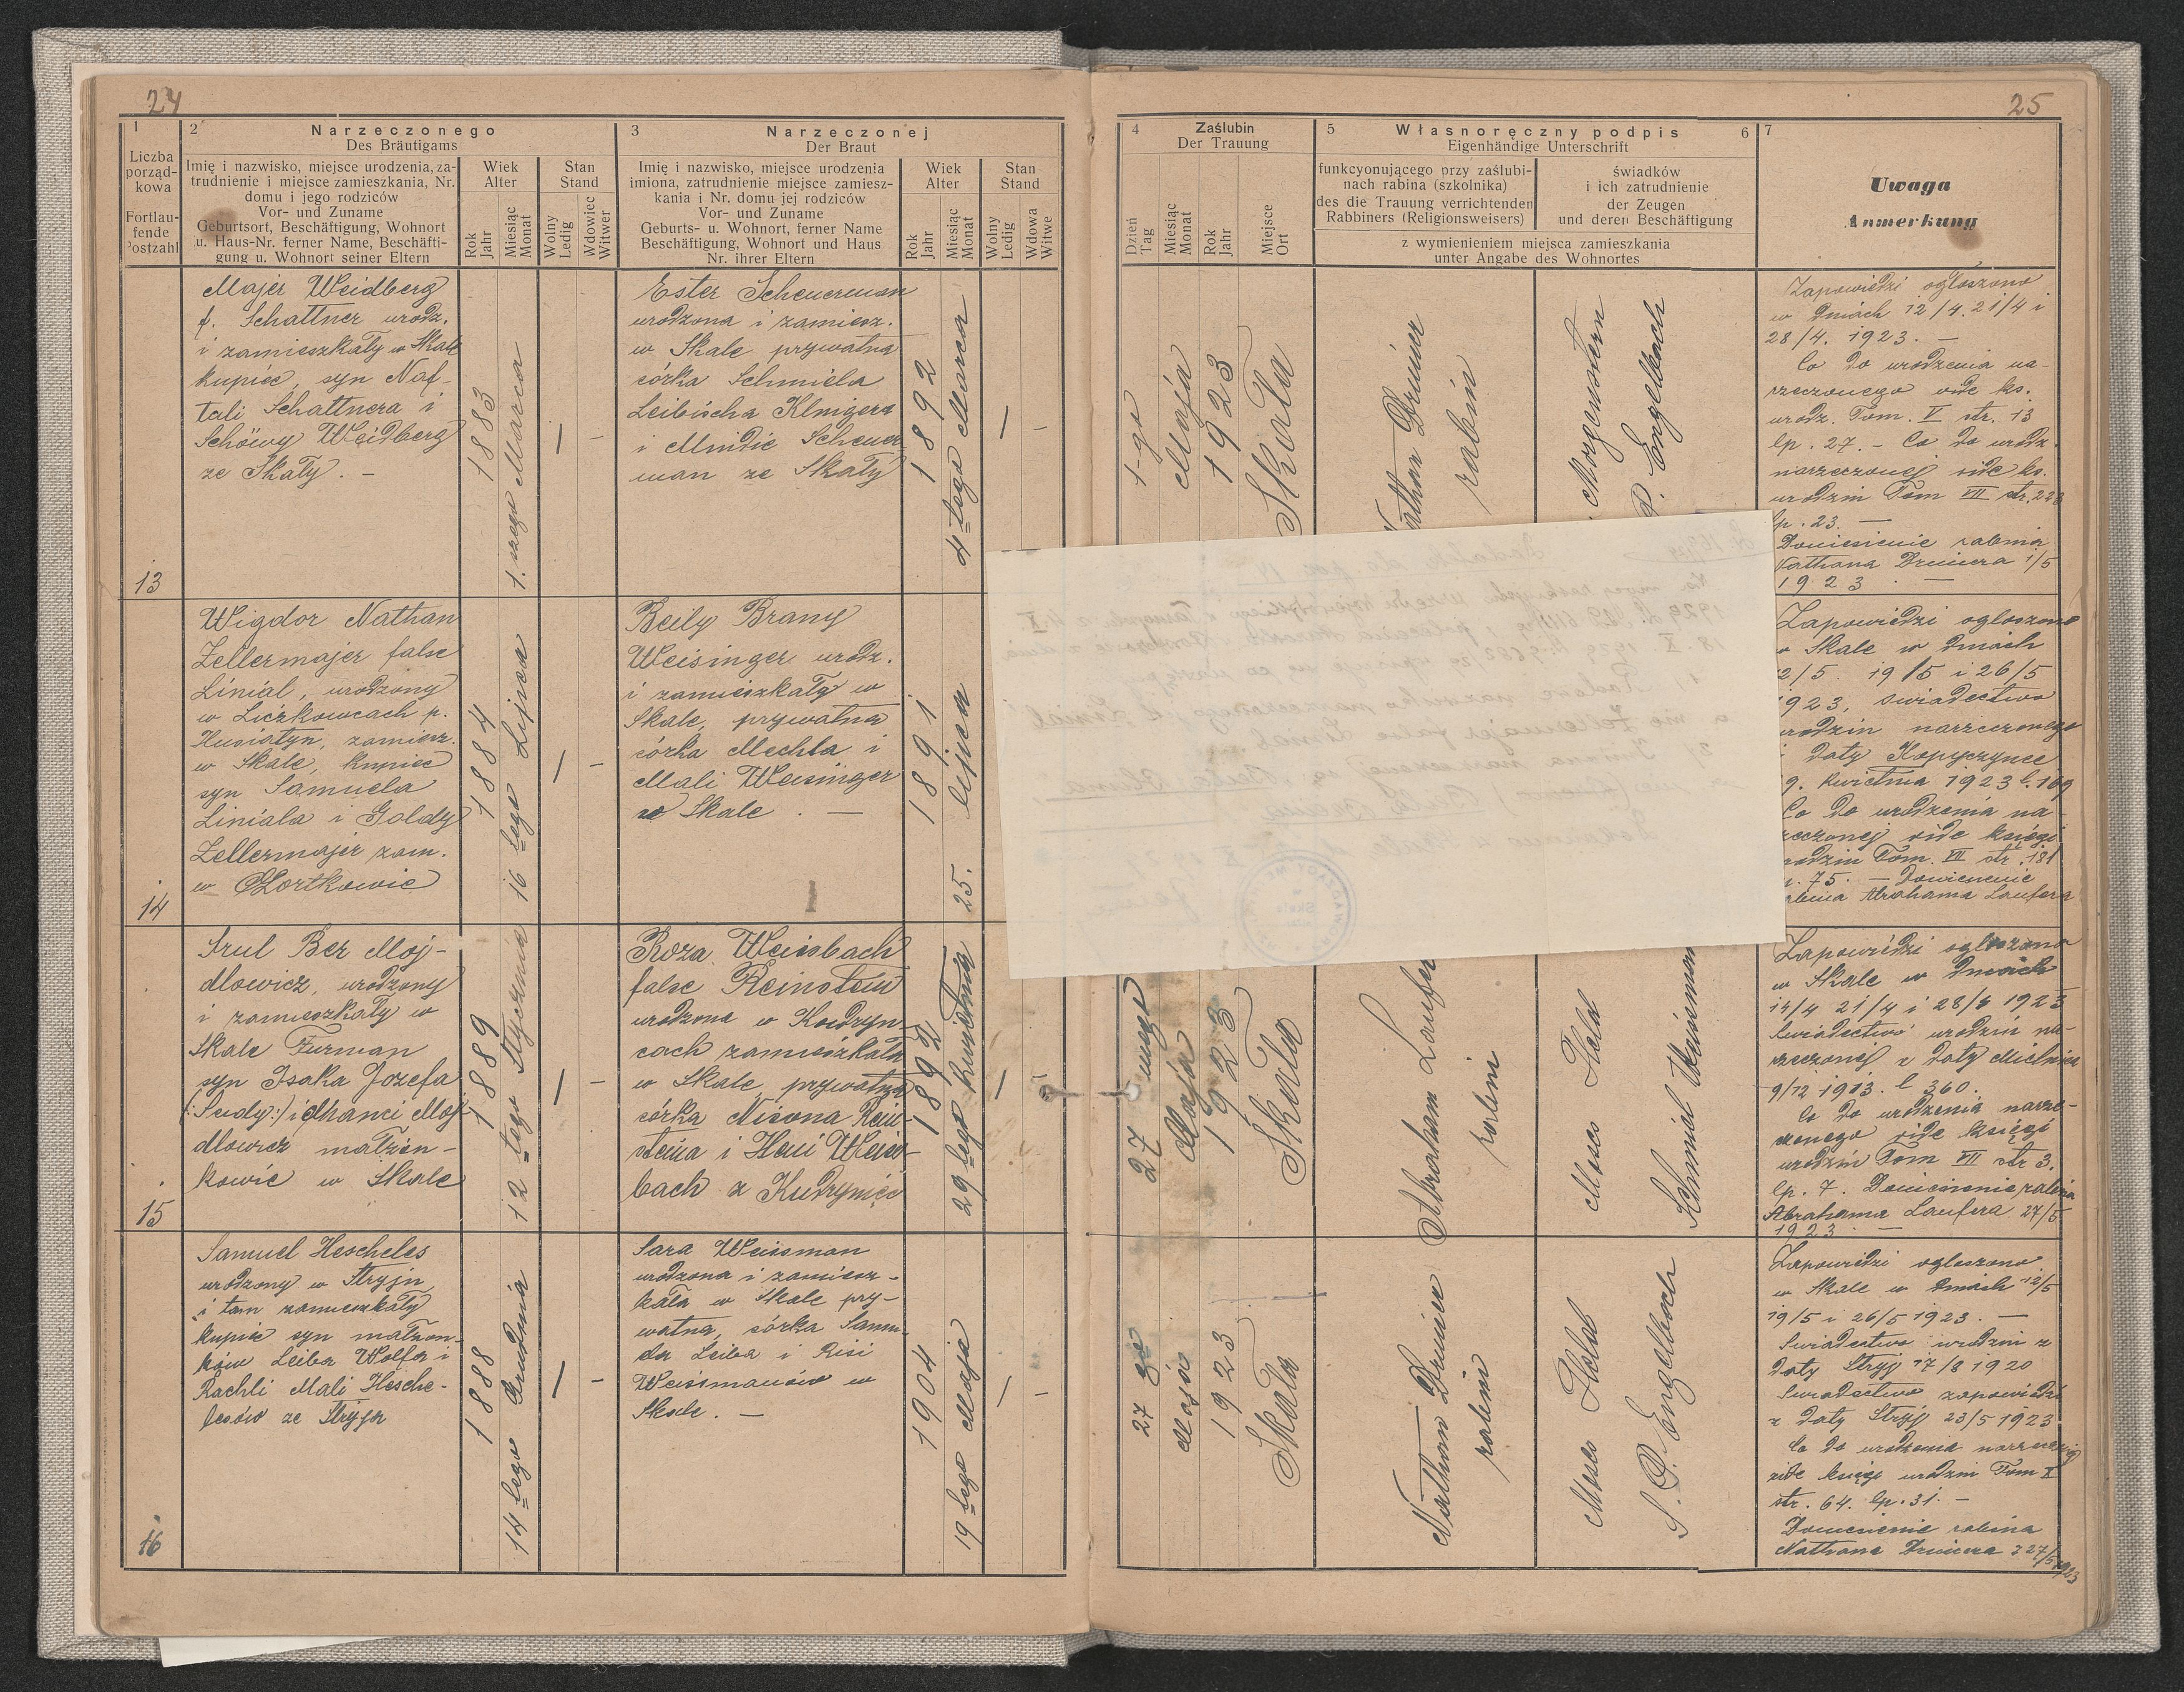 24
1
Liczba
porząd-
kowa
Fortlau-
fende
Postzahl
2 Narzeczonego
Des Bräutigams
Imię i nazwisko, miejsce urodzenia, za-
trudnienie i miejsce zamieszkania, Nr.
domu i jego rodziców
Vor- und Zuname
Geburtsort, Beschäftigung, Wohnort
u. Haus-Nr. ferner Name, Beschäfti-
gung u. Wohnort seiner Eltern
Wiek
Alter
Rok
Jahr
Miesiąc
Monat
Stan
Stand
Wolny
Ledig
Wdowiec
Witwer
3 Narzeczonej
Der Braut
Imię i nazwisko, miejsce urodzenia
imiona, zatrudnienie miejsce zamiesz-
kania i Nr. domu jej rodziców
Vor- und Zuname
Geburts- u. Wohnort, ferner Name
Beschäftigung, Wohnort und Haus
Nr. ihrer Eltern
Wiek
Alter
Rok
Jahr
Miesiąc
Monat
Stan
Stand
Wolny
Ledig
Wdowa
Witwe
13
Majer Weidberg
f. Schattner urodz.
i zamieszkały w Skale
kupiec, syn Naf-
tali Schattnera i
Schöwy Weidberg
ze Skały. -
1883
1. szego Marca
Ester Scheuerman
urodzona i zamiesz.
w Skale prywatna
córka Schmiela
Leibischa Klnigera
i Mindie Scheuer
man ze Skały
1892
4-tego Marca
14
Wigdor Nathan
Zellermajer false
Linial, urodzony
w Liczkowcach p.
Husiatyn, zamiesz.
w Skale, kupiec
syn Samuela
Liniala i Goldy
Zellermajer zam.
w Czortkowie
1884
16 lego Lipca
Beily Brany
Weisinger urodz.
i zamieszkały w
Skale, prywatna
córka Mechla i
Mali Weisinger
w Skale. —
1891
25. lipca
15
Srul Ber Maj-
dlowicz, urodzony
i zamieszkały w
Skale Furman
syn Isaka Jozefa
(Sudy:) i Chanci Maj-
dlowicz małżon-
kowie w Skale
1889
12-tego Stycznia
Roza Weissbach
false Reinstein
urodzona w Kudryn-
cach zamieszkała
w Skale, prywatna
córka Nisona Rein-
steina i Heni Weiss-
bach z Kudryniec
1892
29 lego kwietnia
16
Samuel Hescheles
urodzony w Stryju
i tam zamieszkały
kupiec syn małżon-
ków Leiba Wolfa i
Rachli Mali Hesche-
lesów ze Stryja
1888
14 lego Grudnia
Sara Weissman
urodzona i zamiesz-
kała w Skale pry-
watna, córka Samu-
ela Leiba i Risi
Weissmanów w
Skale. —
1904
19 lego Maja
25
4 Zaślubin
Der Trauung
Dzień
Tag
Miesiąc
Monat
Rok
Jahr
Miejsce
Ort
5 Własnoręczny podpis 6
Eigenhändige Unterschrift
funkcyonującego przy zaślubi-
nach rabina (szkolnika)
des die Trauung verrichtenden
Rabbiners (Religionsweisers)
świadków
i ich zatrudnienie
der Zeugen
und deren Beschäftigung
z wymienieniem miejsca zamieszkania
unter Angabe des Wohnortes
7
Uwaga
Anmerkung
1-go
Maja
1923
Skała
Nathan Drimer
rabin
Morgenstern
P. Engelbach
Zapowiedzi ogłoszono
w Dniach 12/4. 21/4 i
28/4. 1923. —
Co do urodzenia na-
rzeczonego vide ks.
urodz. Tom. V str. 13
lp. 27. - Co do urodz.
narzeczonej vide ks.
urodzin Tom VII str. 228
lp. 23. —
Doniesienie rabina
Nathana Drimera 1/5
1923. —
Zapowiedzi ogłoszono
w Skale w Dniach
12/5. 19/5 i 26/5
1923, swiadectwo
urodzin narzeczonego
z Daty Kopyczynce
9. kwietnia 1923 l. 169
Co do urodzenia na-
rzeczonej vide księgi
urodzin Tom. VII str. 181
lp. 75. — Doniesienie
rabina Abrahama Laufera
27 mego
Maja
1923
Skała
Abraham Laufer
rabin
Moses Held
Schmiel Weissman
Zapowiedzi ogłoszono
w Skale w Dniach
14/4 21/4 i 28/4 1923
Swiadectwo urodzin na-
rzeczonej z Daty Mielnica
9/12 1913. l 360.
Co do urodzenia narze-
czonego vide księgi
urodzin Tom VII str 3.
lp. 7. Doniesienie rabina
Abrahama Laufera 27/5
1923. —
27 go
Maja
1923
Skała
Nathan Drimer
rabin
Moses Held
S. P. Engelbach
Zapowiedzi ogłoszono
w Skale w Dniach 12/5
19/5 i 26/5 1923. —
Swiadectwo urodzin z
Daty Stryj 17/8 1920
Swiadectwo zapowiedzi
z Daty Stryj 23/5 1923
Co do urodzenia narzeczonej
vide księgi urodzin Tom X
str. 64. lp. 31. -
Doniesienie rabina
Nathana Drimera z 27/5 1923